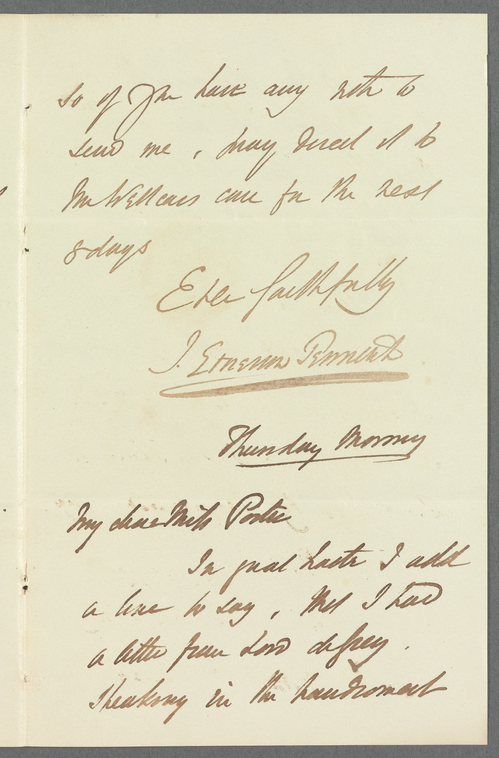 so if you have any note to
send me, pray direct it to
Mr Wellears care for the next
8 days
Ever faithfully
J. Emerson Tennent
Thursday Morning
My dear Miss Porter
In great haste I add
a line to say, that I had
a letter from Lord de Grey.
speaking in the handsomest